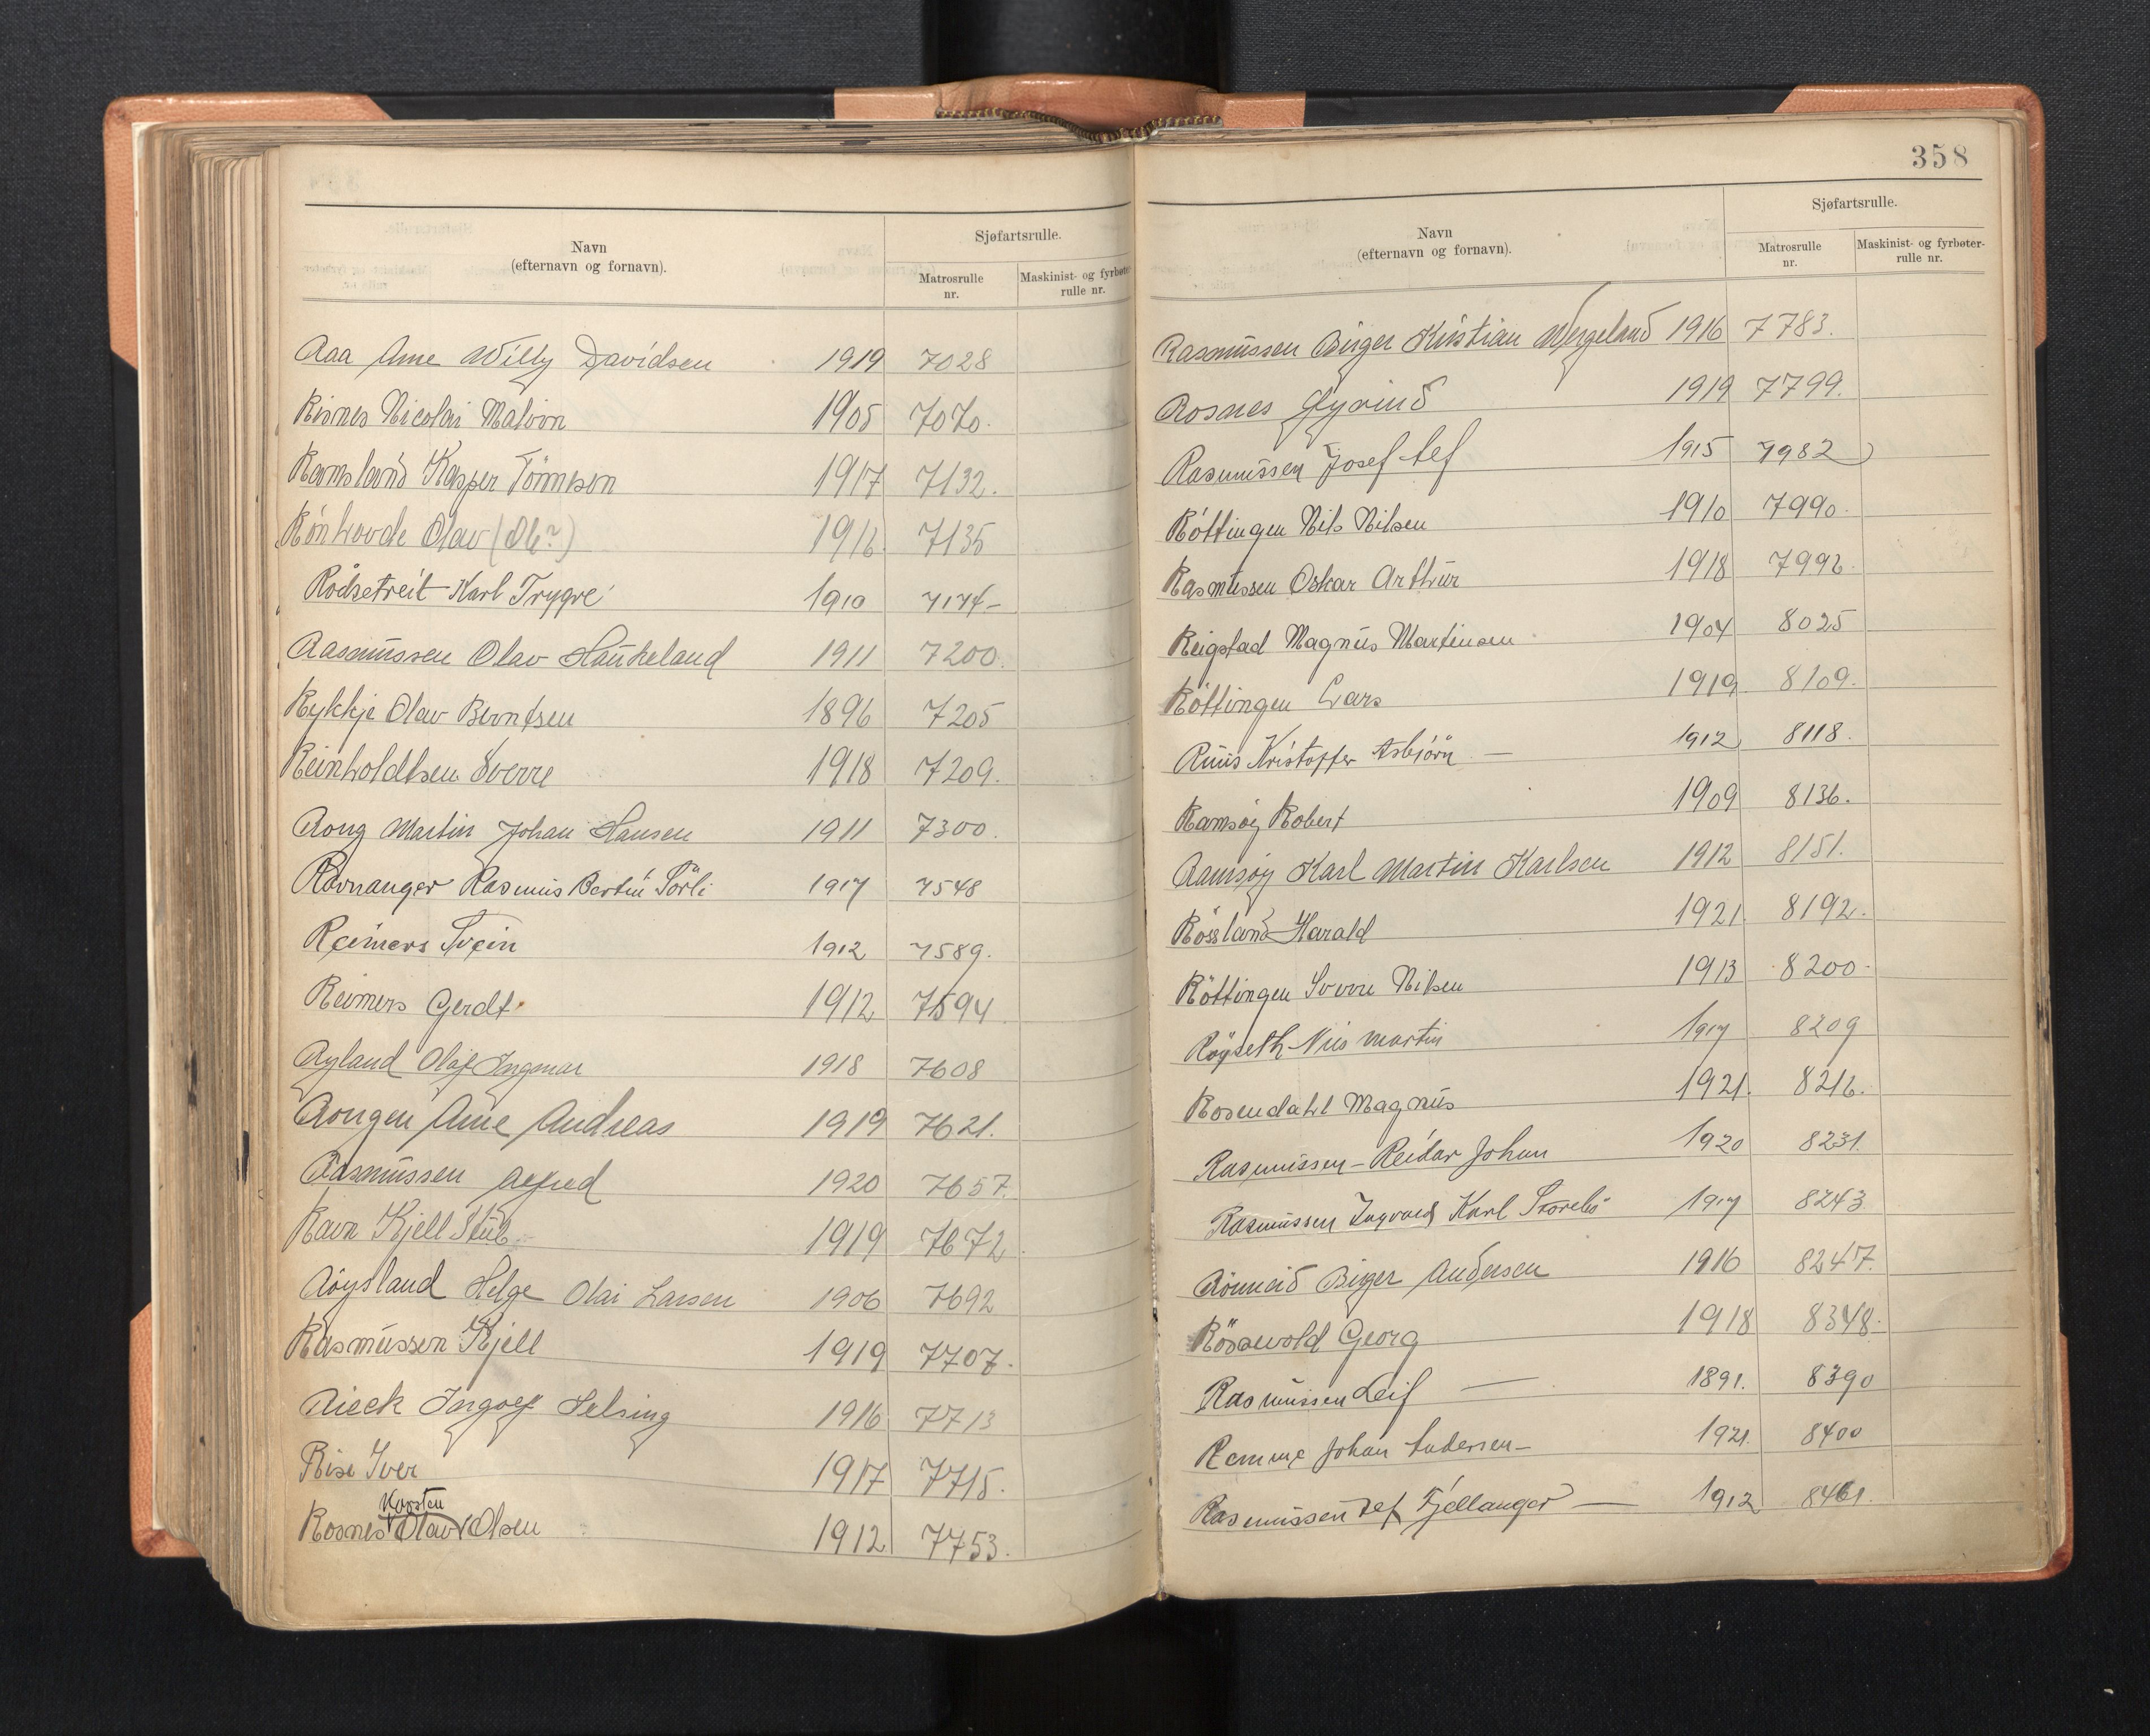 Navn
(efternavn og fornavn).
Sjøfartsrulle.
Matrosrulle
nr.
Maskinist- og fyrbøter-
rulle nr.
Raa Arne Willy Davidsen 1919 7028
Risnes Nicolai Malvin 1905 7070.
Ramsland Kasper Tönnesen 1917 7132.
Rönhovde Olav (Ol?) 1916 7135
Rödsetreit Karl Trygve 1910 7174-
Rasmussen Olav Haukeland 1911 7200.
Rykkje Olav Berntsen 1896 7205
Reinholdtsen Sverre 1918 7209.
Rong Martin Johan Hansen 1911 7300.
Ravnanger Rasmus Bertin Sörli 1917 7548
Reimers Svein 1912 7589.
Reimers Gerdt. 1912 7594
Ryland Olaf Ingmar 1918 7608
Rongen Arne Andreas 1919 7621.
Rasmussen Alfred 1920 7657.
Ravn Kjell Stub. 1919 7672.
Röysland Helge Olai Larsen 1906 7692
Rasmussen Kjell 1919 7707.
Rieck Ingolf Helsing 1916 7713
Rise Iver 1917 7715.
Karsten
Rosnes Olav Olsen 1912 7753.
358
Navn
(efternavn og fornavn).
Sjøfartsrulle.
Matrosrulle
nr.
Maskinist- og fyrbøter-
rulle nr.
Rasmussen Birger Kristian Wergeland 1916 7783.
Rosnes Øyvind 1919 7799.
Rasmussen Josef 1915 7982
Röttingen Nils Nilsen 1910 7990.
Rasmussen Oskar Arthur 1918 7992.
Reigstad Magnus Martinsen 1904 8025
Röttingen Lars 1919. 8109.
Kristoffer Asbjörn — 1912 8118.
Ramsöy Robert 1909 8136.
Ramsöy Karl Martin Karlsen 1912 8151.
Rössland Harald 1921. 8192.
Röttingen Sverre Nilsen 1913 8200.
Röyseth Nils Martin 1917 8209
Rosendahl Magnus 1921. 8216.
Rasmussen - Reidar Johan 1920 8231.
Rasmussen Ingvald Karl Storebö 1917 8243
Rönneid Birger Andersen 1916 8247.
Rösevold Georg 1918 8348.
Rasmussen Leif — 1891. 8390
Remme Johan Andersen - 1921. 8400
Rasmussen Fjellanger — 1912 8461.